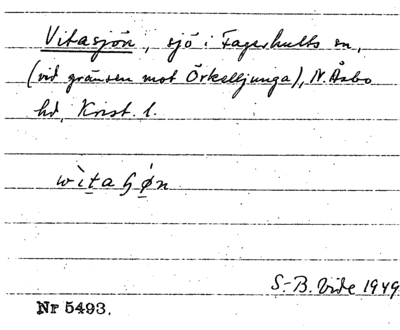 Vitasjön, sjö i Fagerhults sn,
(vid gränsen mot Örkelljunga), N. Åsbo
hd, Krist. l.
wìtaɧǿn
S.-B. Vide 1949
Nr 5493.